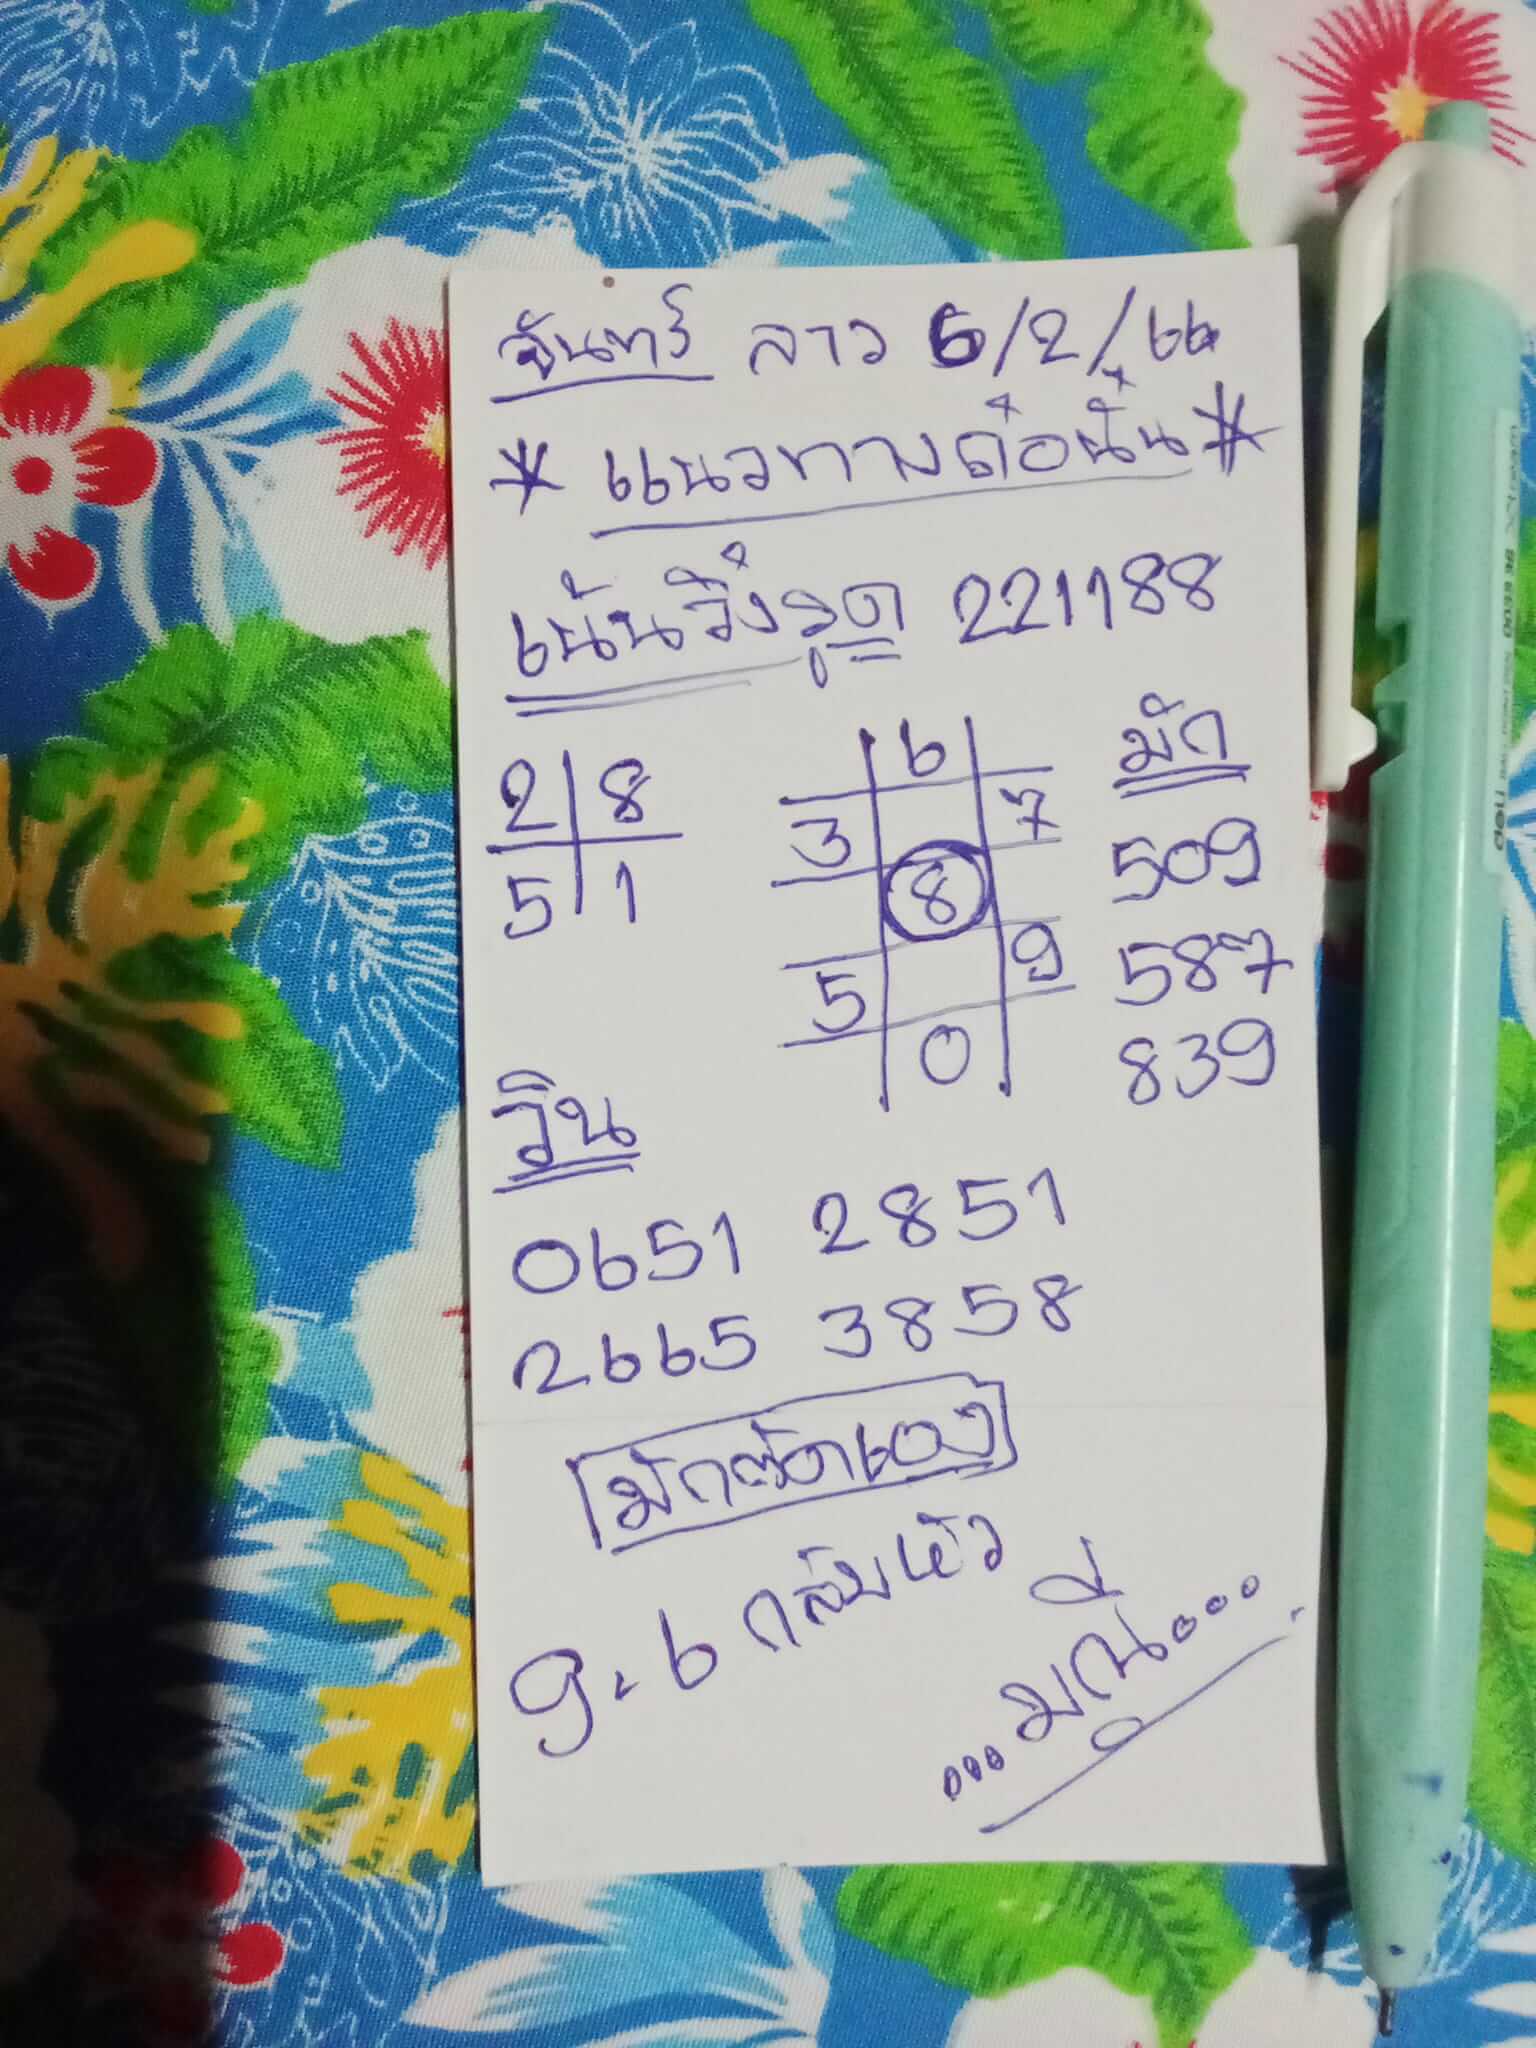 จันทร์ ลาว 6/2/66
* แนวทางต่อนั้น *
เน้นวิ่งรูด 221188
2 8
5 1
6
3 7
8
5 9
0
มัก
509
587
839
วิน
0651 2851
2665 3858
มักตัดเอง
9.6 กลับหัว
...มณี...